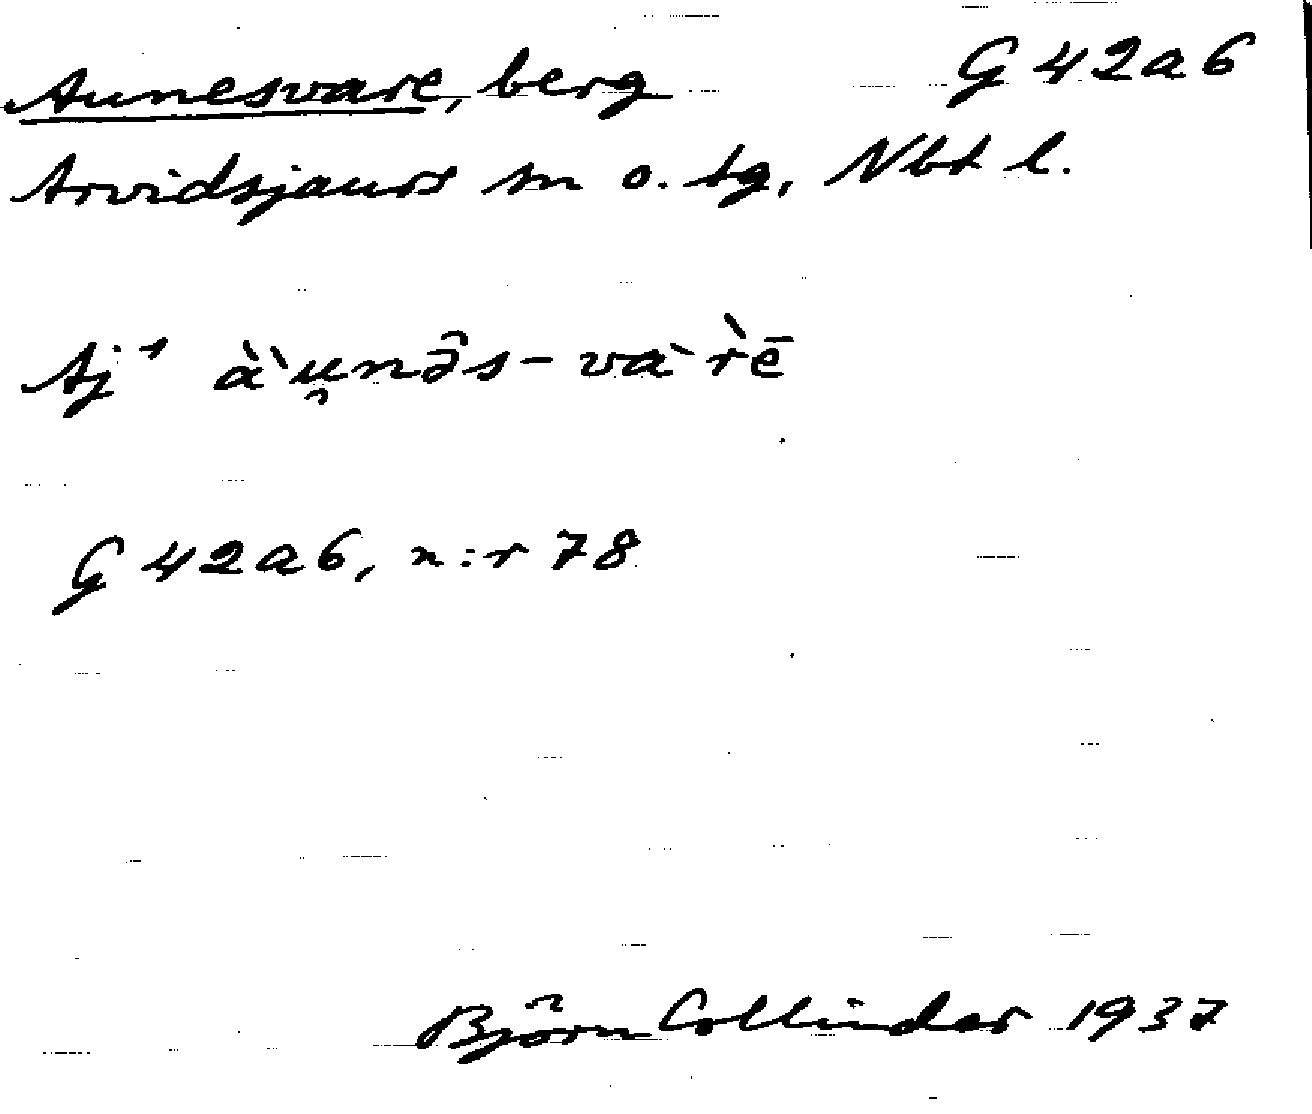 Aunesvare, berg G 42a6
Arvidsjaurs sn o. tg, Nbt l.
Aj¹ àˋu̯nə̑s-vàˋrē
G 42a6, n:r 78
Björn Collinder 1937